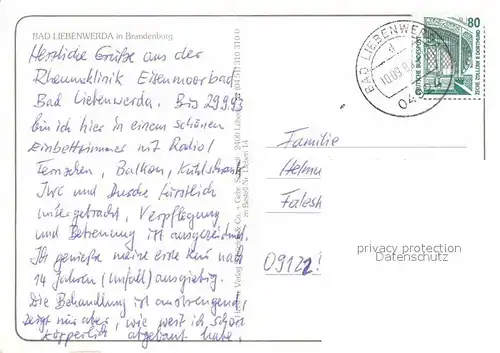 BAD LIEBENWERDA in Brandenburg
Herzliche Grüße aus der
Rheumaklinik Eisenmoorbad
Bad Liebenwerda. Bis 29.9.93
bin ich hier in einem schönen
Einbettzimmer mit Radio/
Fernsehen, Balkon, Kühlschrank
und Dusche fürstlich
untergebracht, Verpflegung
und Betreuung ist ausgezeichnet.
Ich genieße meine erste Kur nach
14 Jahren (Unfall) ausgiebig.
Die Behandlung ist anstrengend,
zeigt mir aber, wie weit ich schon
körperlich abgebaut habe,
Verlag
2400 Lübeck
BAD LIEBENWERDA
10.09.9
04
80
DEUTSCHE BUNDESPOST
ZECHE ZOLLERN II DORTMUND
Familie
Helmu
Falest
09122!
privacy protection
Datenschutz